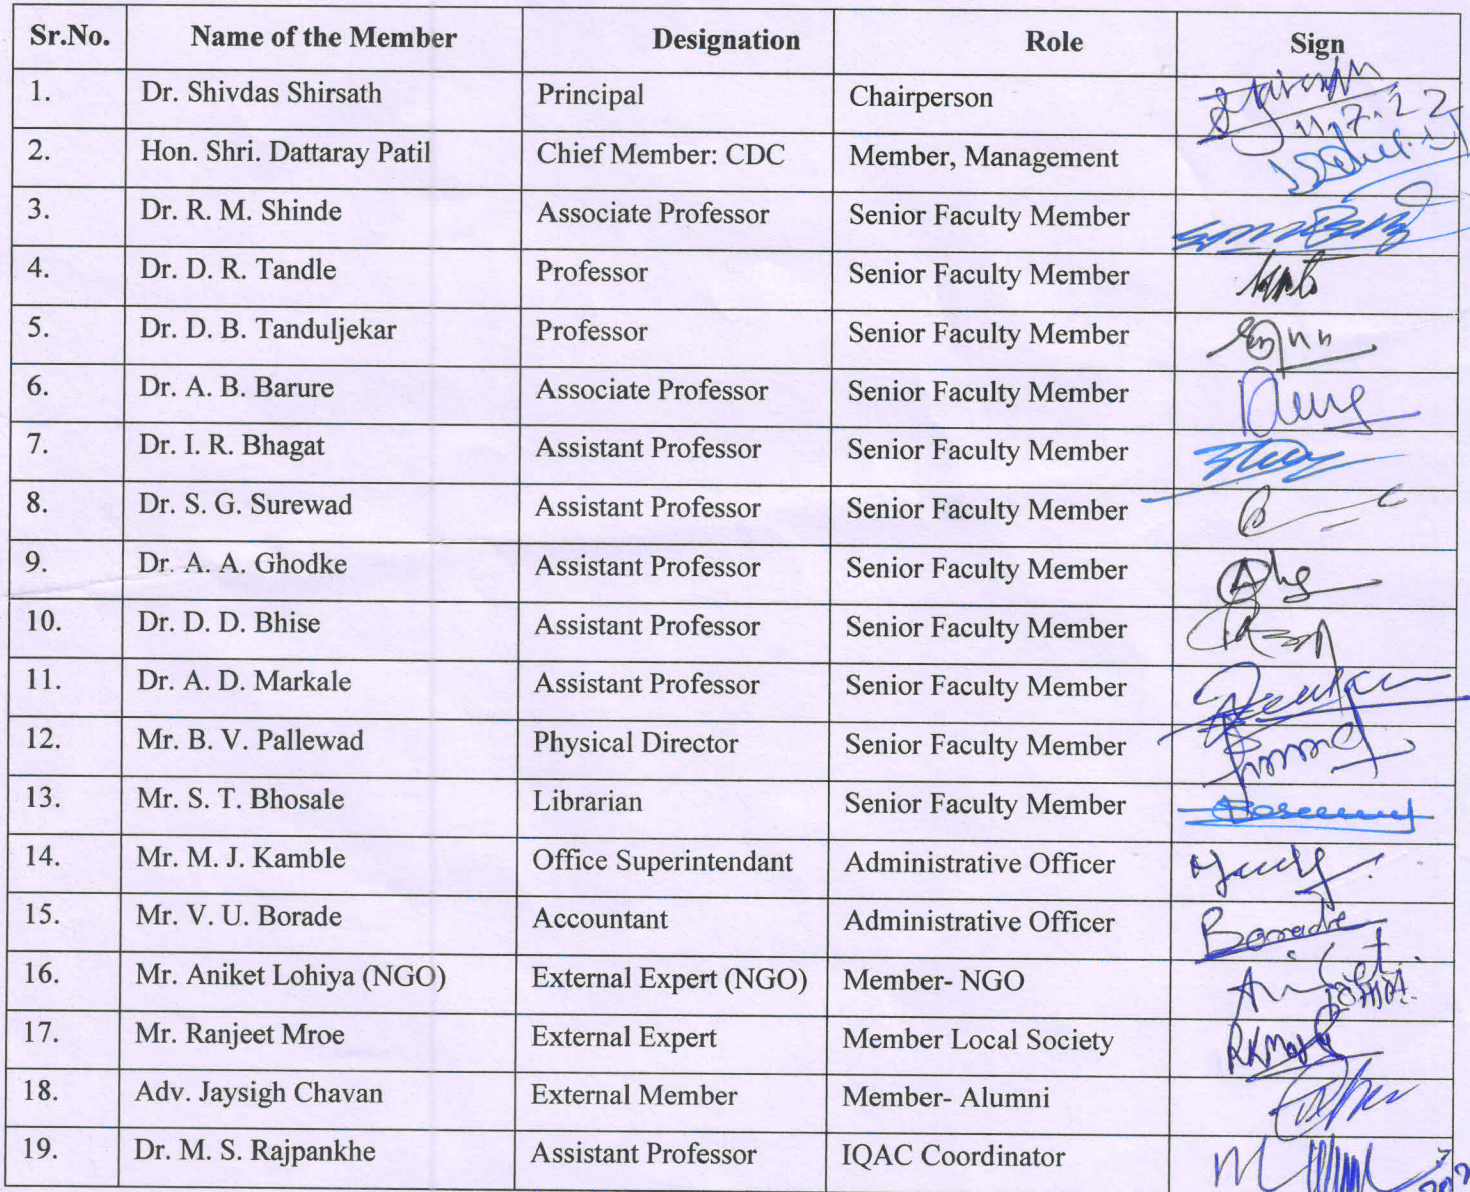 Sr.No. Name of the Member Designation Role Sign
1. Dr. Shivdas Shirsath Principal Chairperson
11.7.22
2. Hon. Shri. Dattaray Patil Chief Member: CDC Member, Management
3. Dr. R. M. Shinde Associate Professor Senior Faculty Member
4. Dr. D. R. Tandle Professor Senior Faculty Member
5. Dr. D. B. Tanduljekar Professor Senior Faculty Member
6. Dr. A. B. Barure Associate Professor Senior Faculty Member
7. Dr. I. R. Bhagat Assistant Professor Senior Faculty Member
8. Dr. S. G. Surewad Assistant Professor Senior Faculty Member
9. Dr. A. A. Ghodke Assistant Professor Senior Faculty Member
10. Dr. D. D. Bhise Assistant Professor Senior Faculty Member
11. Dr. A. D. Markale Assistant Professor Senior Faculty Member
12. Mr. B. V. Pallewad Physical Director Senior Faculty Member
13. Mr. S. T. Bhosale Librarian Senior Faculty Member
14. Mr. M. J. Kamble Office Superintendant Administrative Officer
15. Mr. V. U. Borade Accountant Administrative Officer Borade
16. Mr. Aniket Lohiya (NGO) External Expert (NGO) Member- NGO Aniket
17. Mr. Ranjeet Mroe External Expert Member Local Society
18. Adv. Jaysigh Chavan External Member Member- Alumni
19. Dr. M. S. Rajpankhe Assistant Professor IQAC Coordinator